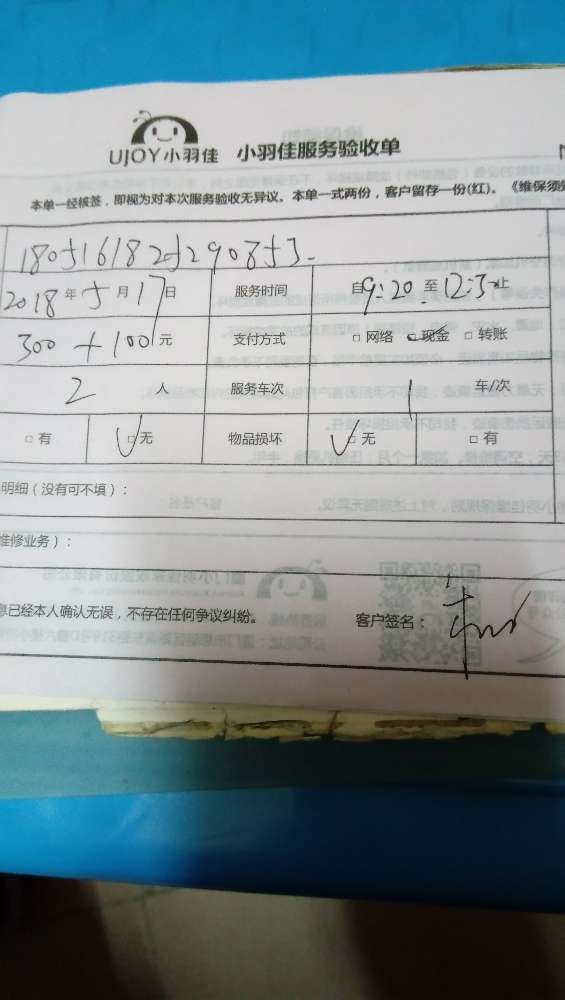 UJOY小羽佳 小羽佳服务验收单
本单一经核签，即视为对本次服务验收无异议。本单一式两份，客户留存一份(红)。《维保须
1805161825290853
2018年5月17日 服务时间 自9:20至12:3止
300+100元 支付方式 □网络 □现金 □转账
2人 服务车次 1车/次
□有 □无 物品损坏 □无 □有
明细（没有可不填）：
维修业务）：
息已经本人确认无误，不存在任何争议纠纷。 客户签名：